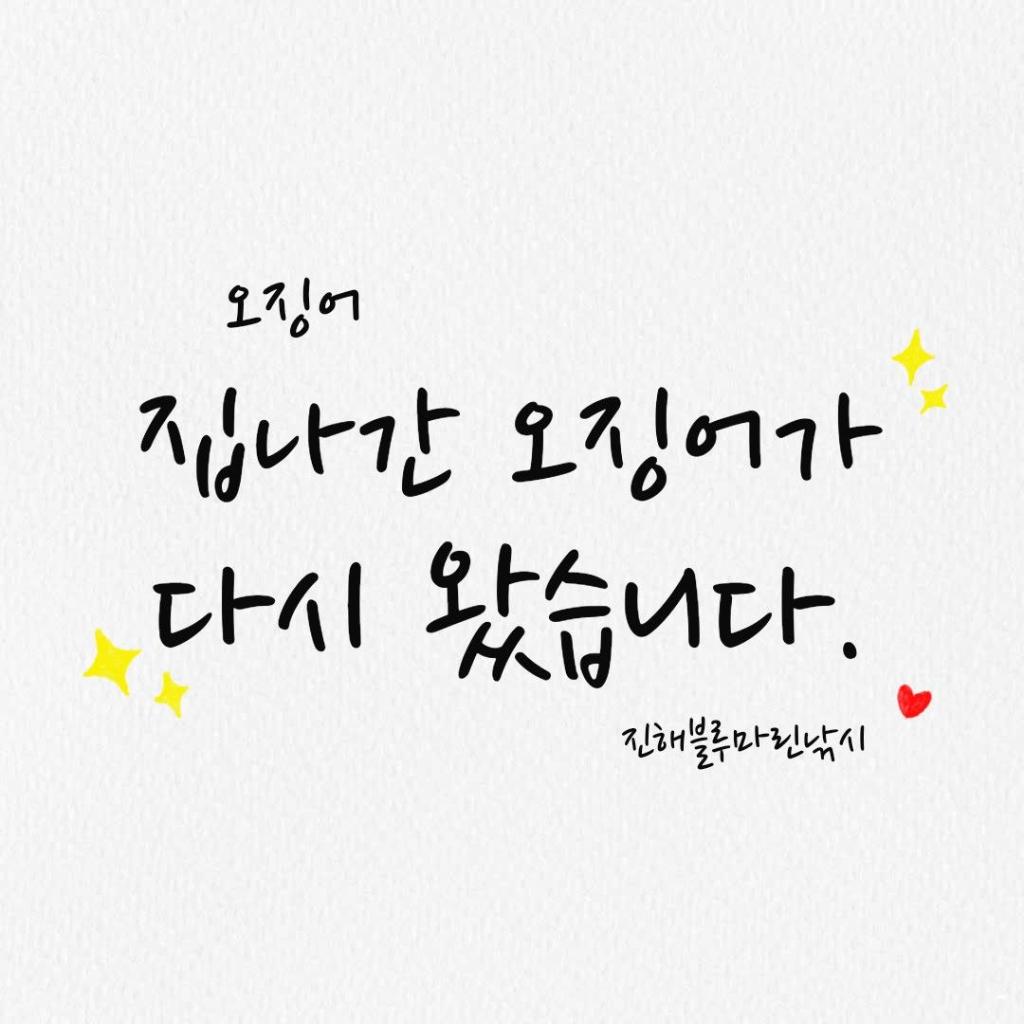 오징어
집나간 오징어가
다시 왔습니다.
진해블루마린낚시